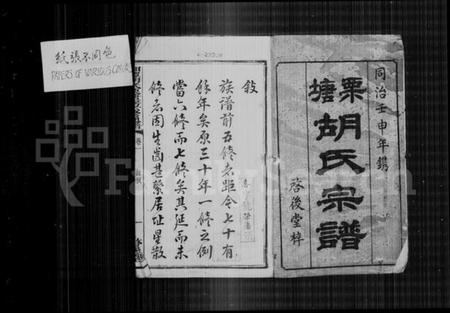 紙張不同色
PAPERS OF VARIOUS COLOR
同治壬申年鐫
栗塘胡氏宗譜
啓後堂梓
敍
族譜前五修者距今七十有
餘年矣原三十年一修之例
當六修而七修矣其延而未
修者因生齒甚繁居址星散